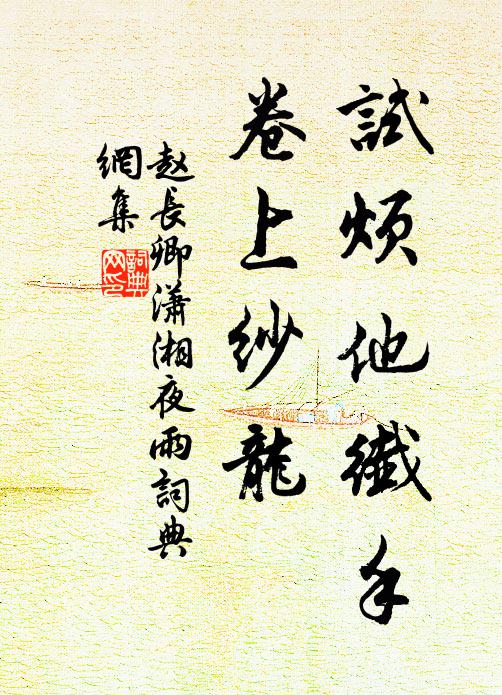 試煩他纖手
卷上紗龍
赵長卿瀟湘夜雨詞典
網集
詞典
网印